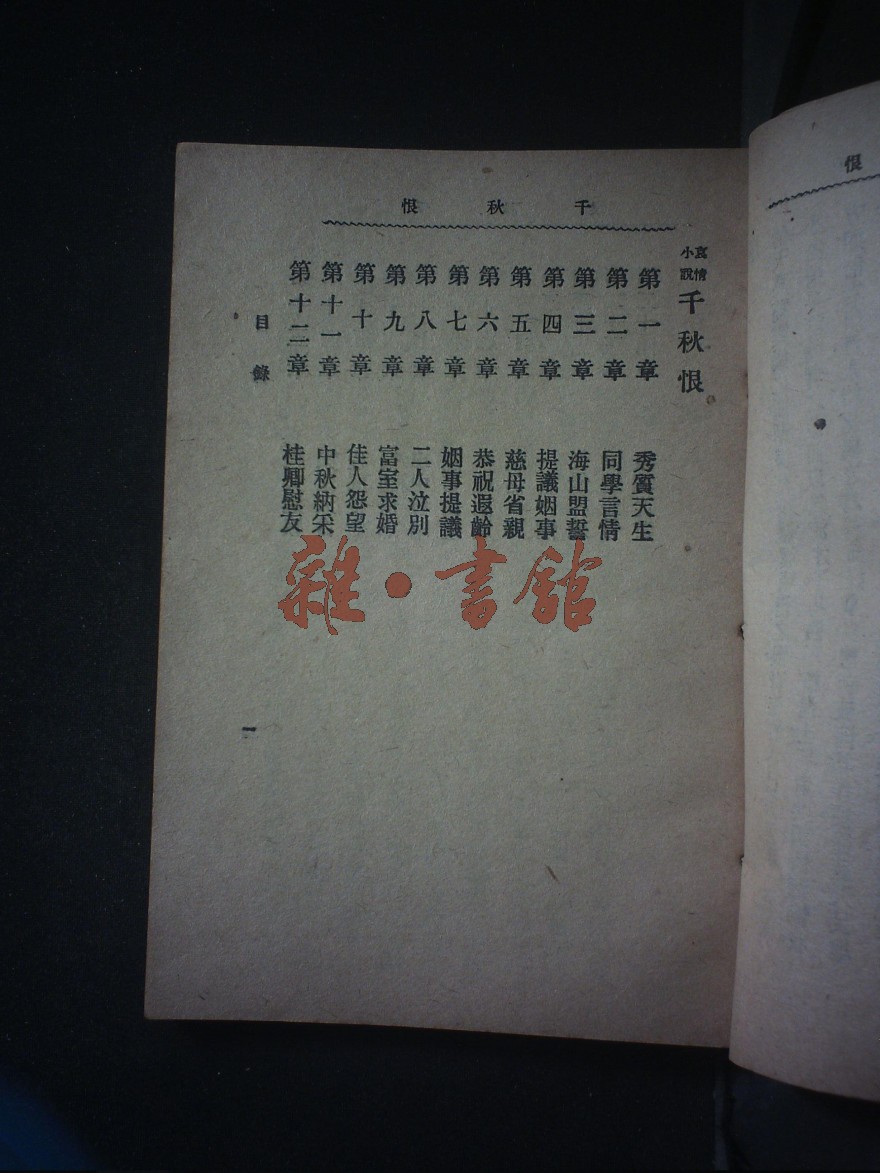 千秋恨
哀情小說 千秋恨
第一章 秀質天生
第二章 同學言情
第三章 海山盟誓
第四章 提議姻事
第五章 慈母省親
第六章 恭祝遐齡
第七章 姻事提議
第八章 二人泣別
第九章 富室求婚
第十章 佳人怨望
第十一章 中秋納采
第十二章 桂卿慰友
目錄
一
恨
雜·書館